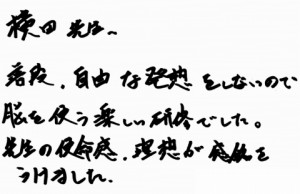 横田先生へ
普段、自由な発想をしないので
脳を使う楽しい研修でした。
先生の使命感、理想が感銘を
うけました。